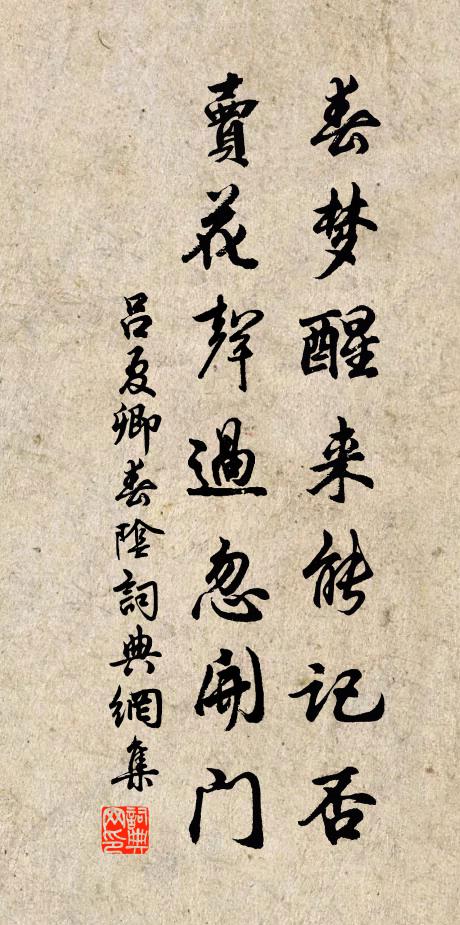 春梦醒来能记否
賣花聲過忽開门
吕夏卿春陰詞典網集
詞典網印